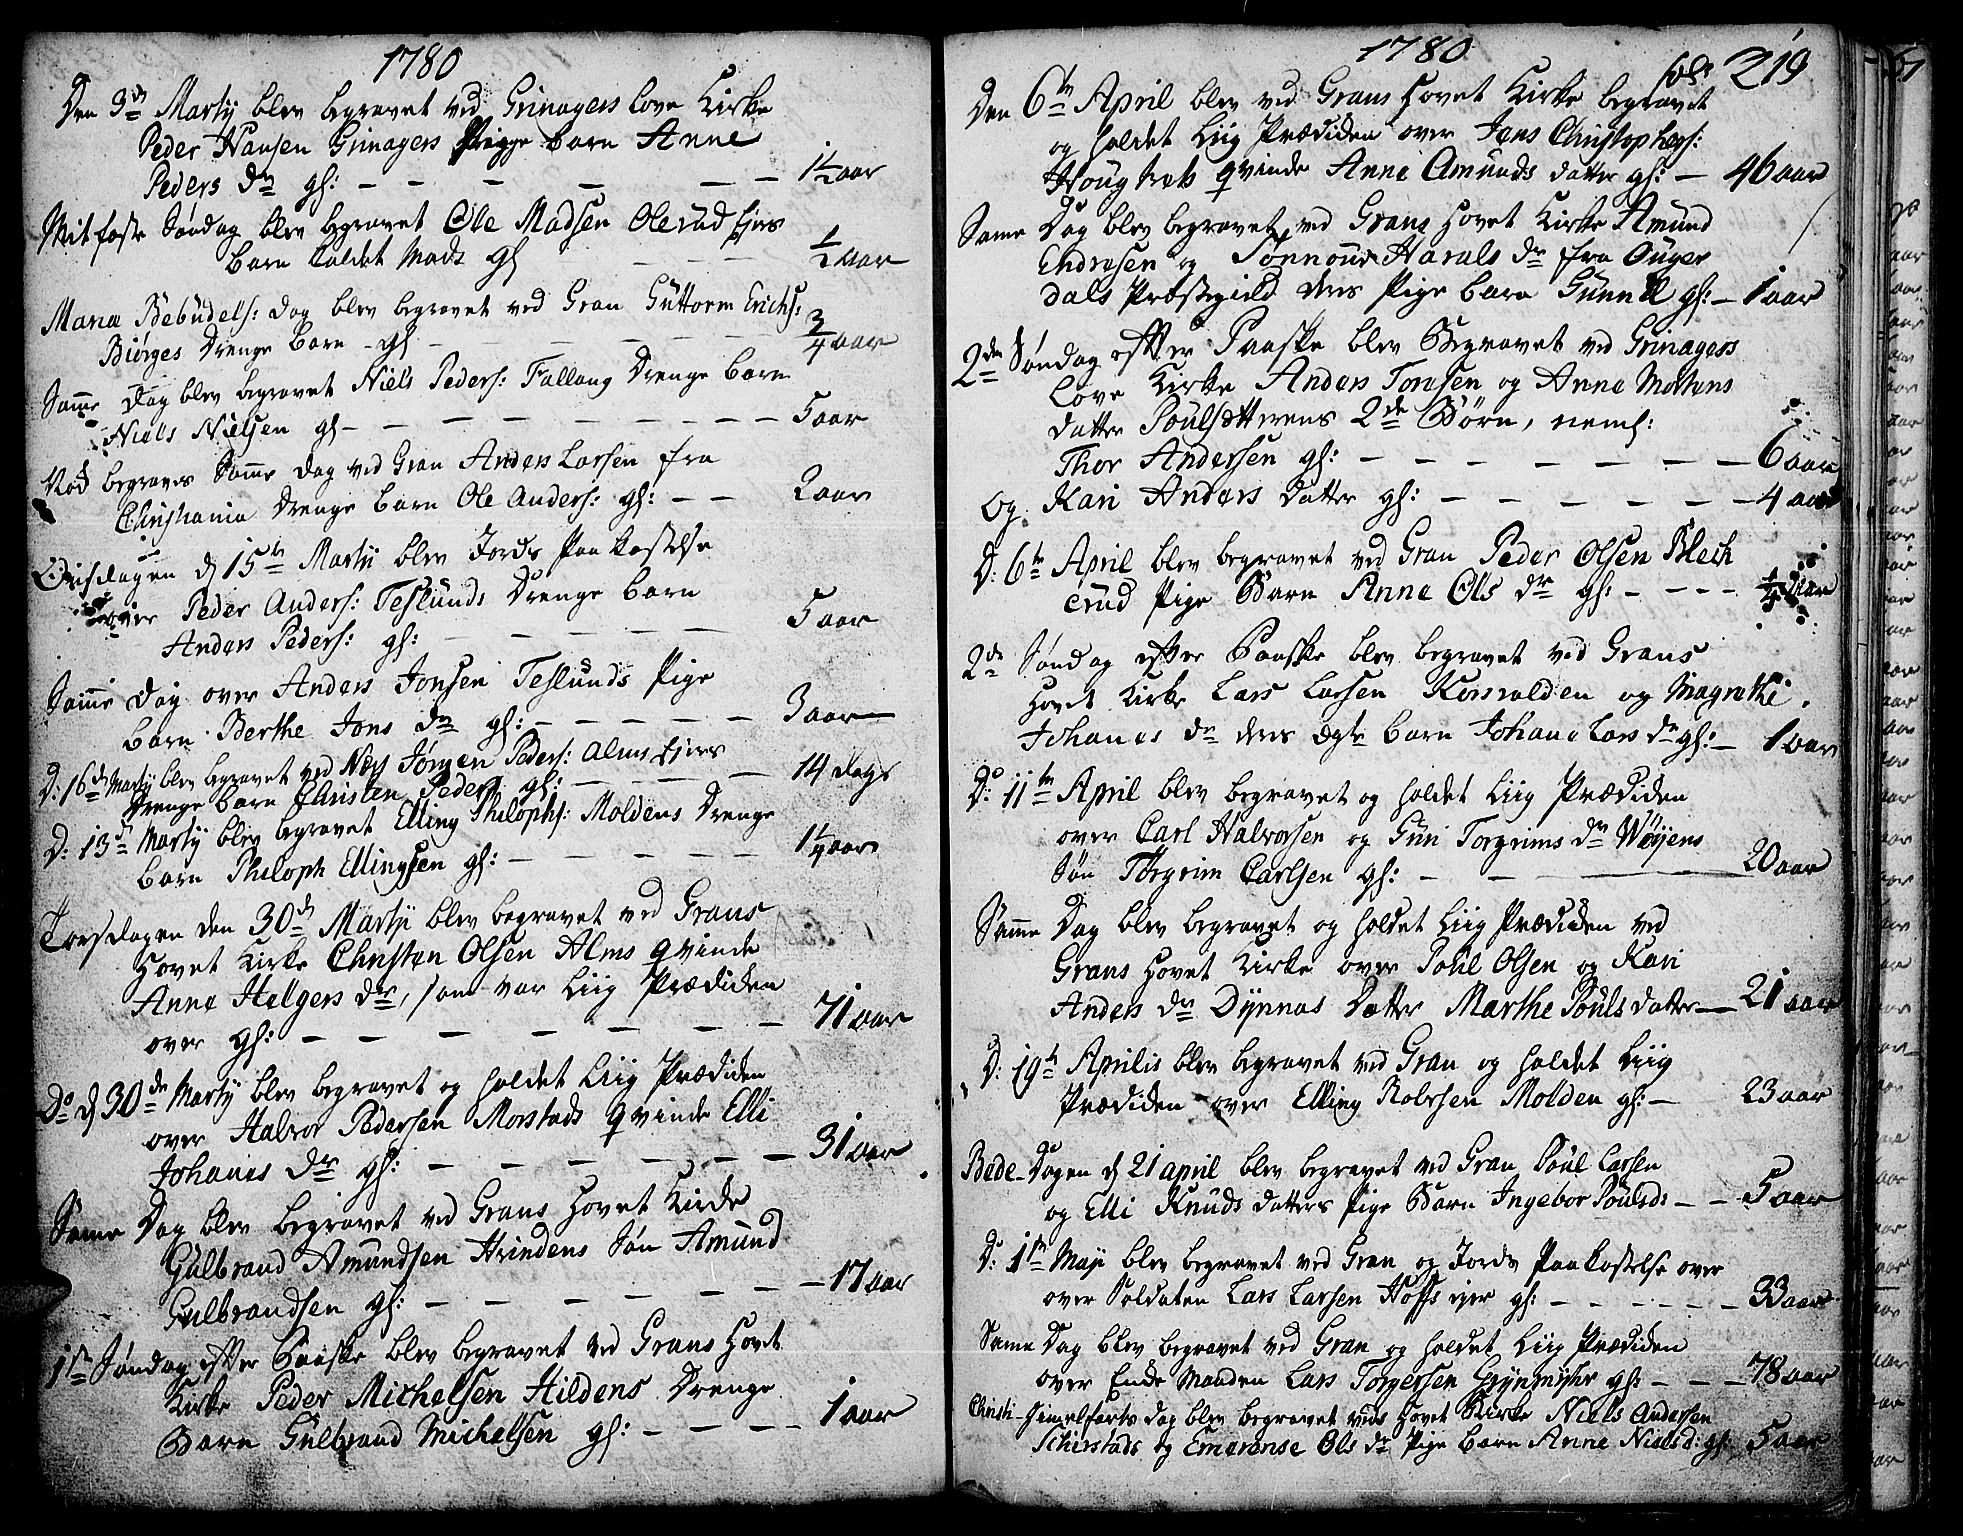 1780
Den 3de Martij blev begravet ved Grinagers Love Kirke
Peder Hansen Grinagers Pige barn Anne
Peders dr gl: — — — — — — 1½ aar
Mitfaste Søndag blev begravet Ole Madsen Olerud Ejers
barn kaldet Mads gl — — — ½ aar
Mariæ Bebudels: Dag blev begravet ved Gran Guttorm Erichs:
Biørges Drenge barn gl — — — — ¾ aar
Samme Dag blev begravet Niels Peders: Fallang Drenge barn
Niels Nielsen gl — — — — — — — 5 aar
Nok begraves Samme dag ved Gran Anders Larsen fra
Christiania Drenge barn Ole Anders: gl: — — 2 aar
Onsdagen d 15de Martij blev Jords Paakastelse
over Peder Anders: Teslunds Drenge barn
Anders Peders: gl: — — — — — 5 aar
Samme Dag over Anders Jonsen Teslunds Pige
barn Berthe Jons dr gl: — — — — — 3 aar
D: 16de Martij blev begravet ved Næs Jørgen Peders: Alms Ejers
Drenge barn Christen Peders: gl: — — — — 14 dage
D: 13de Martij blev begravet Elling Philophs: Moldens Drenge
barn Philoph Ellingsen gl: — — — — — 1¼ aar
Torsdagen den 30de Martij blev begravet ved Grans
Hovet Kirke Christen Olsen Alms qvinde
Anne Helgers dr, som var Liig Prædiken
over gl: — — — — — — — 71 aar
Do d 30de Martij blev begravet og holdet Liig Prædiken
over Halvor Pedersen Morstads qvinde Elli
Johanes dr gl: — — — — — — 31 aar
Same Dag blev begravet ved Grans Hovet Kirke
Gulbrand Amundsen Hvindens Søn Amund
Gulbrandsen gl: — — — — — — — 17 aar
1ste Søndag efter Paaske blev begravet ved Grans Hovet
Kirke Peder Michelsen Hildens Drenge
Barn Gulbrand Michelsen gl: — — — — 1 aar
1780
fol: 219
Den 6te April blev ved Grans Hovet Kirke begravet
og holdet Liig Prædiken over Jens Christophers:
qvinde Anne Amunds datter gl: — 46 aar
Same Dag blev begravet ved Grans Hovet Kirke Amund
Endresen og Harals dr fra Ouger
dals Præstegield deres Pige barn Gunnil gl: — 1 aar
2de Søndag efter Paaske blev Begravet ved Grinagers
Love Kirke Anders Toresen og Anne Mortens
datter 2de Børn, neml:
Thor Andersen gl: — — — — — — — 6 aar
og Kari Anders datter gl: — — — — — — 4 aar
D: 6te April blev begravet ved Gran Peder Olsen Blech
erud Pige Barn Anne Ols dr gl: — — — — ¼ aar
2de Søndag efter Paaske blev begravet ved Grans
Hovet Kirke Lars Larsen Korsvolden og Magrethe
Johanes dr deres ægte barn Johane Lars dr gl: — 1 aar
Do: 11te April blev begravet og holdet Liig Prædiken
over Carl Halvorsen og Guri Torgrims dr Wøyens
Søn Torgrim Carlsen gl: — — — 20 aar
Samme Dag blev begravet og holdet Liig Prædiken ved
Grans Hovet Kirke over Poul Olsen og Kari
Anders dr Dynnas Datter Marthe Pouls datter — 21 aar
D: 19te Aprilis blev begravet ved Gran og holdet Liig
Prædiken over Elling Rolvsen Molden gl: — 23 aar
Bede-Dagen d 21 april blev begravet ved Gran Poul Larsen
og Elli Knuds datters Pige Barn Ingebor Poulsd: — — 5 aar
D: 1ste Maji blev begravet ved Gran og Jords Paakastelse over
over Soldaten Lars Larsen Hoffs ejer gl: — — — — — — 33 aar
Same Dag blev begravet ved Gran og holdet Liig Prædiken
over Enke Manden Lars Torgersen Grynmyhr gl: — — — 78 aar
Christi-Himelfarts Dag blev begravet ved Hovet Kirke Niels Andersen
Schirstads og Emerense Ols dr Pige barn Anne Nielsd: gl: 5 aar